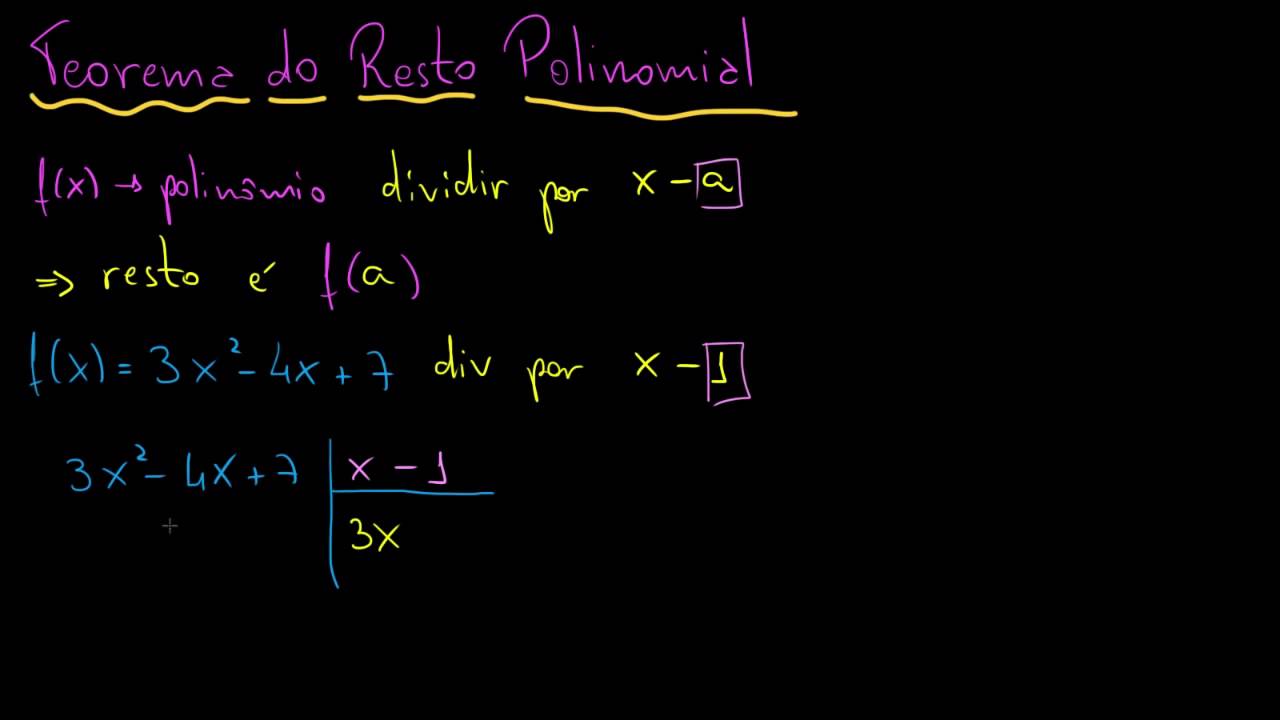 Teorema do Resto Polinomial
f(x) → polinômio dividir por x - a
=> resto é f(a)
f(x) = 3x² - 4x + 7 div por x - 1
3x² - 4x + 7 | x - 1
3x